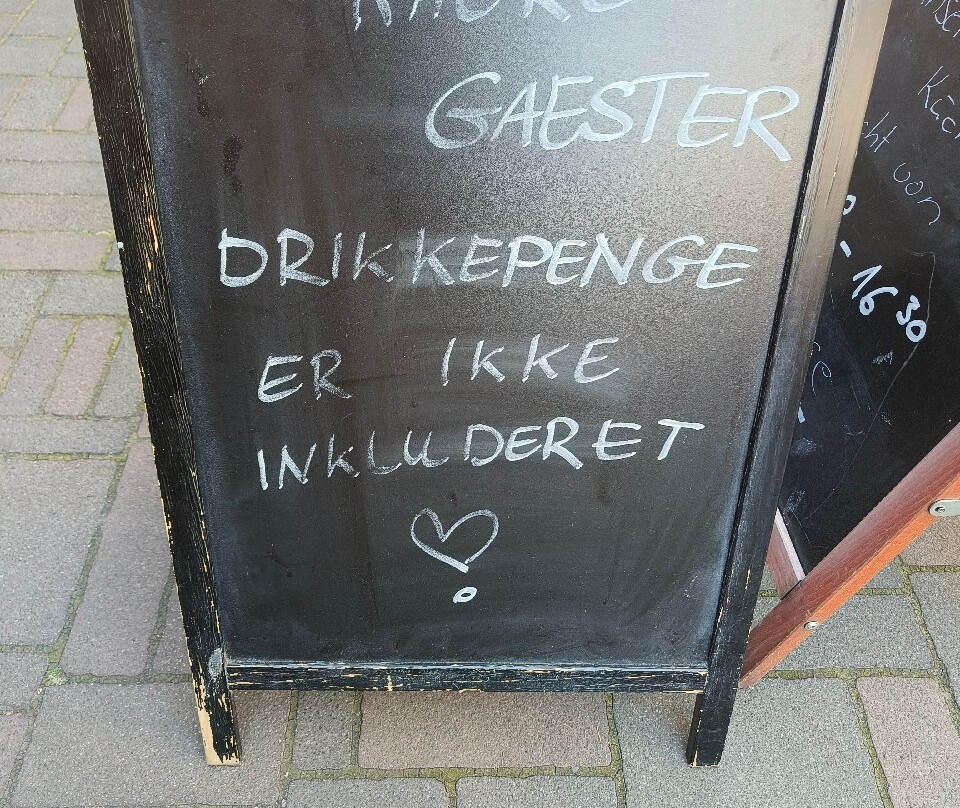 GAESTER
DRIKKEPENGE
ER IKKE
INKLUDERET
von
- 16 30